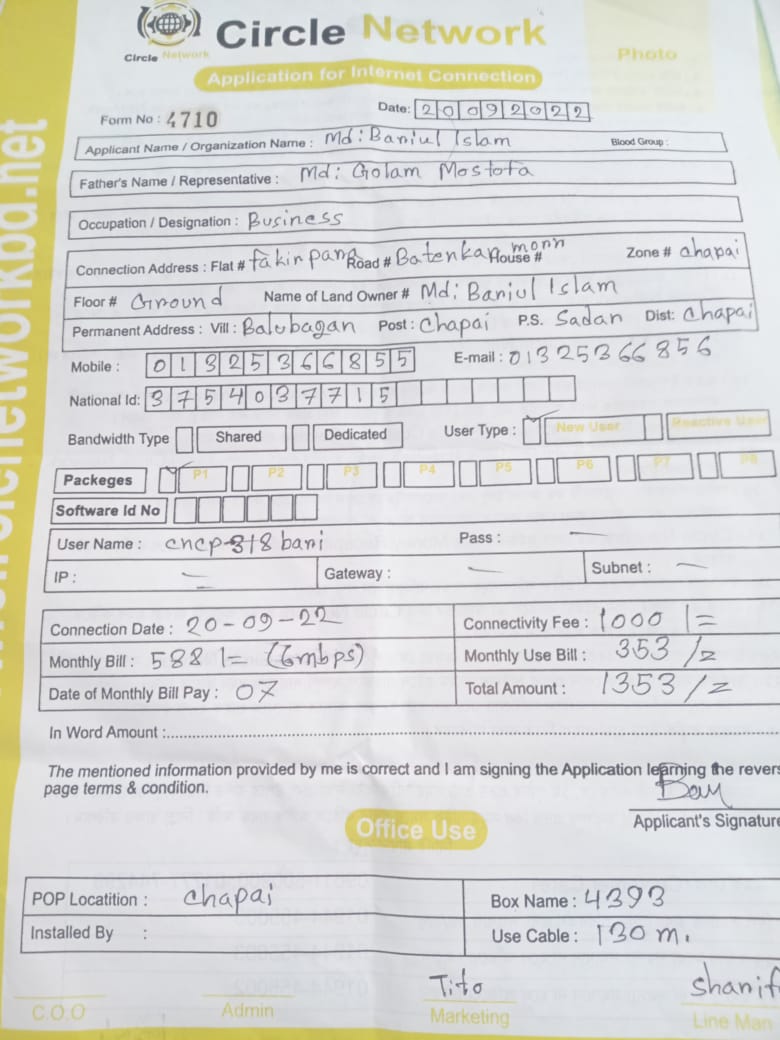 Circle Network
Circle Network
Photo
Application for Internet Connection
Form No : 4710
Date: 20092022
Applicant Name / Organization Name : Md: Baniul Islam Blood Group :
Father's Name / Representative : Md: Golam Mostofa
Occupation / Designation : Business
Connection Address : Flat # fakir para Road # Batenkar monn House # Zone # chapai
Floor # Ground Name of Land Owner # Md: Baniul Islam
Permanent Address : Vill : Balubagan Post : Chapai P.S. Sadan Dist: Chapai
Mobile : 01325366855 E-mail : 01325366856
National Id: 3754037715
Bandwidth Type Shared Dedicated User Type : New User Reactive User
Packeges P1 P2 P3 P4 P5 P6 P7 P8
Software Id No
User Name : cncp-318 bani Pass : —
IP : — Gateway : — Subnet : —
Connection Date : 20-09-22 Connectivity Fee : 1000 /=
Monthly Bill : 588 /= (6mbps) Monthly Use Bill : 353 /=
Date of Monthly Bill Pay : 07 Total Amount : 1353 /=
In Word Amount :
The mentioned information provided by me is correct and I am signing the Application learning the revers
page terms & condition.
Applicant's Signature
Office Use
POP Locatition : chapai Box Name : 4393
Installed By : Use Cable : 130 m.
Tito Shanif
C.O.O Admin Marketing Line Man